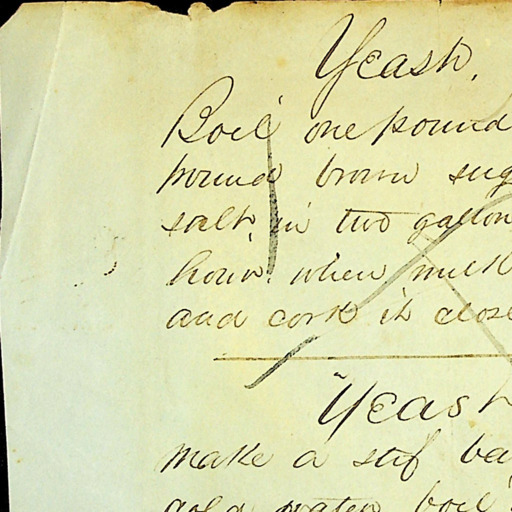 Yeast.
Boil one pound
pound brown sug
salt, in two gallon
hour. when milk
and cork it close
"Yeast
make a stif ba
cold water boil